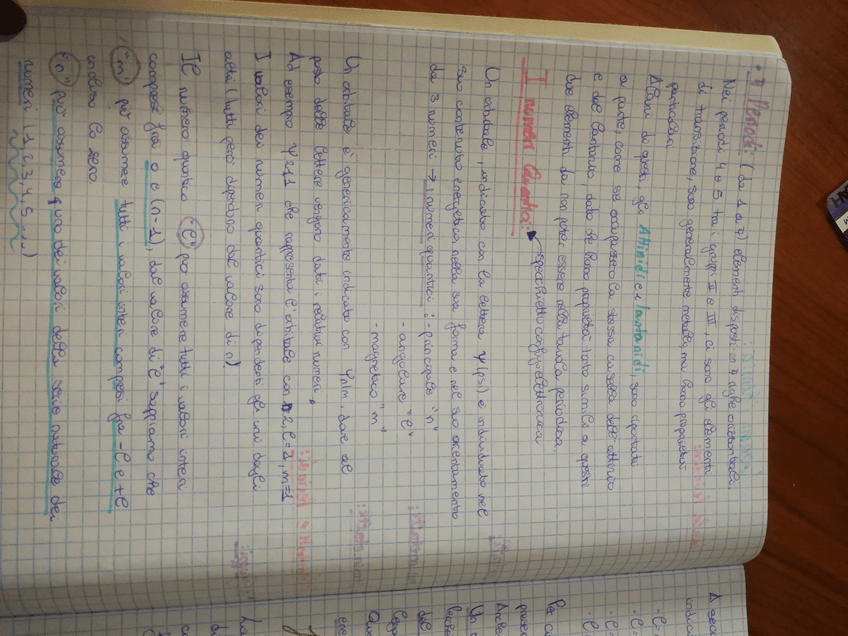 • 7 Periodi: (da 1 a 7) elementi disposti in 7 righe orizzontali.
Nei periodi 4 e 5 tra i gruppi II e III ci sono gli elementi
di transizione, sono generalmente metalli, ma hanno proprietà
particolari.
Alcuni di questi, gli Attinidi e i lantanidi, sono riportati
a parte, come se occupassero la stessa casella dell'attinio
e del lantanio, dato che hanno proprietà tanto simili a questi
due elementi da non poter essere nella tavola periodica
I numeri Quantici: specchietto config. elettronica
Un orbitale, indicato con la lettera ψ (psi) è individuato nel
suo contenuto energetico, nella sua forma e nel suo orientamento
da 3 numeri → i numeri quantici: - principale "n"
- angolare "l"
- magnetico "m"
Un orbitale è genericamente indicato con ψnlm, dove al
posto delle lettere vengono dati i relativi numeri.
Ad esempio ψ211 che rappresenta l'orbitale con n=2, l=1, m=1
I valori dei numeri quantici sono dipendenti gli uni dagli
altri (tutti però dipendono dal valore di n)
Il numero quantico "l" può assumere tutti i valori interi
compresi fra 0 e (n-1), dal valore di "l" sappiamo che
"m" può assumere tutti i valori interi compresi fra -l e +l
incluso lo zero
"n" può assumere uno dei valori della serie naturale dei
numeri (1, 2, 3, 4, 5 ....)
A seco
indica
Per cu
prese
Un o
del
Que
La